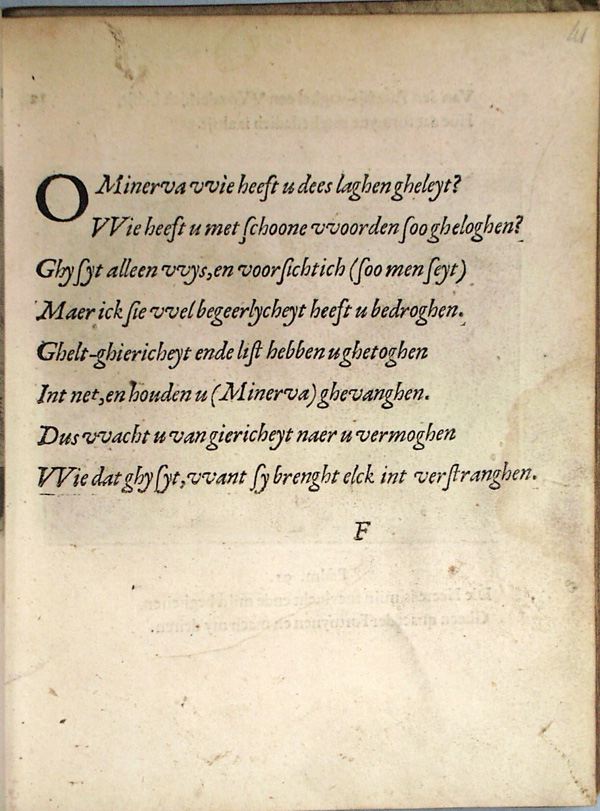 O Minerva vvie heeft u dees laghen gheleyt?
VVie heeft u met ſchoone vvoorden ſoo gheloghen?
Ghy ſyt alleen vvys, en voorſichtich (ſoo men ſeyt)
Maer ick ſie vvel begeerlycheyt heeft u bedroghen.
Ghelt-ghiericheyt ende liſt hebben u ghetoghen
Int net, en houden u (Minerva) ghevanghen.
Dus vvacht u van giericheyt naer u vermoghen
VVie dat ghy ſyt, vvant ſy brenght elck int verſtranghen.
F